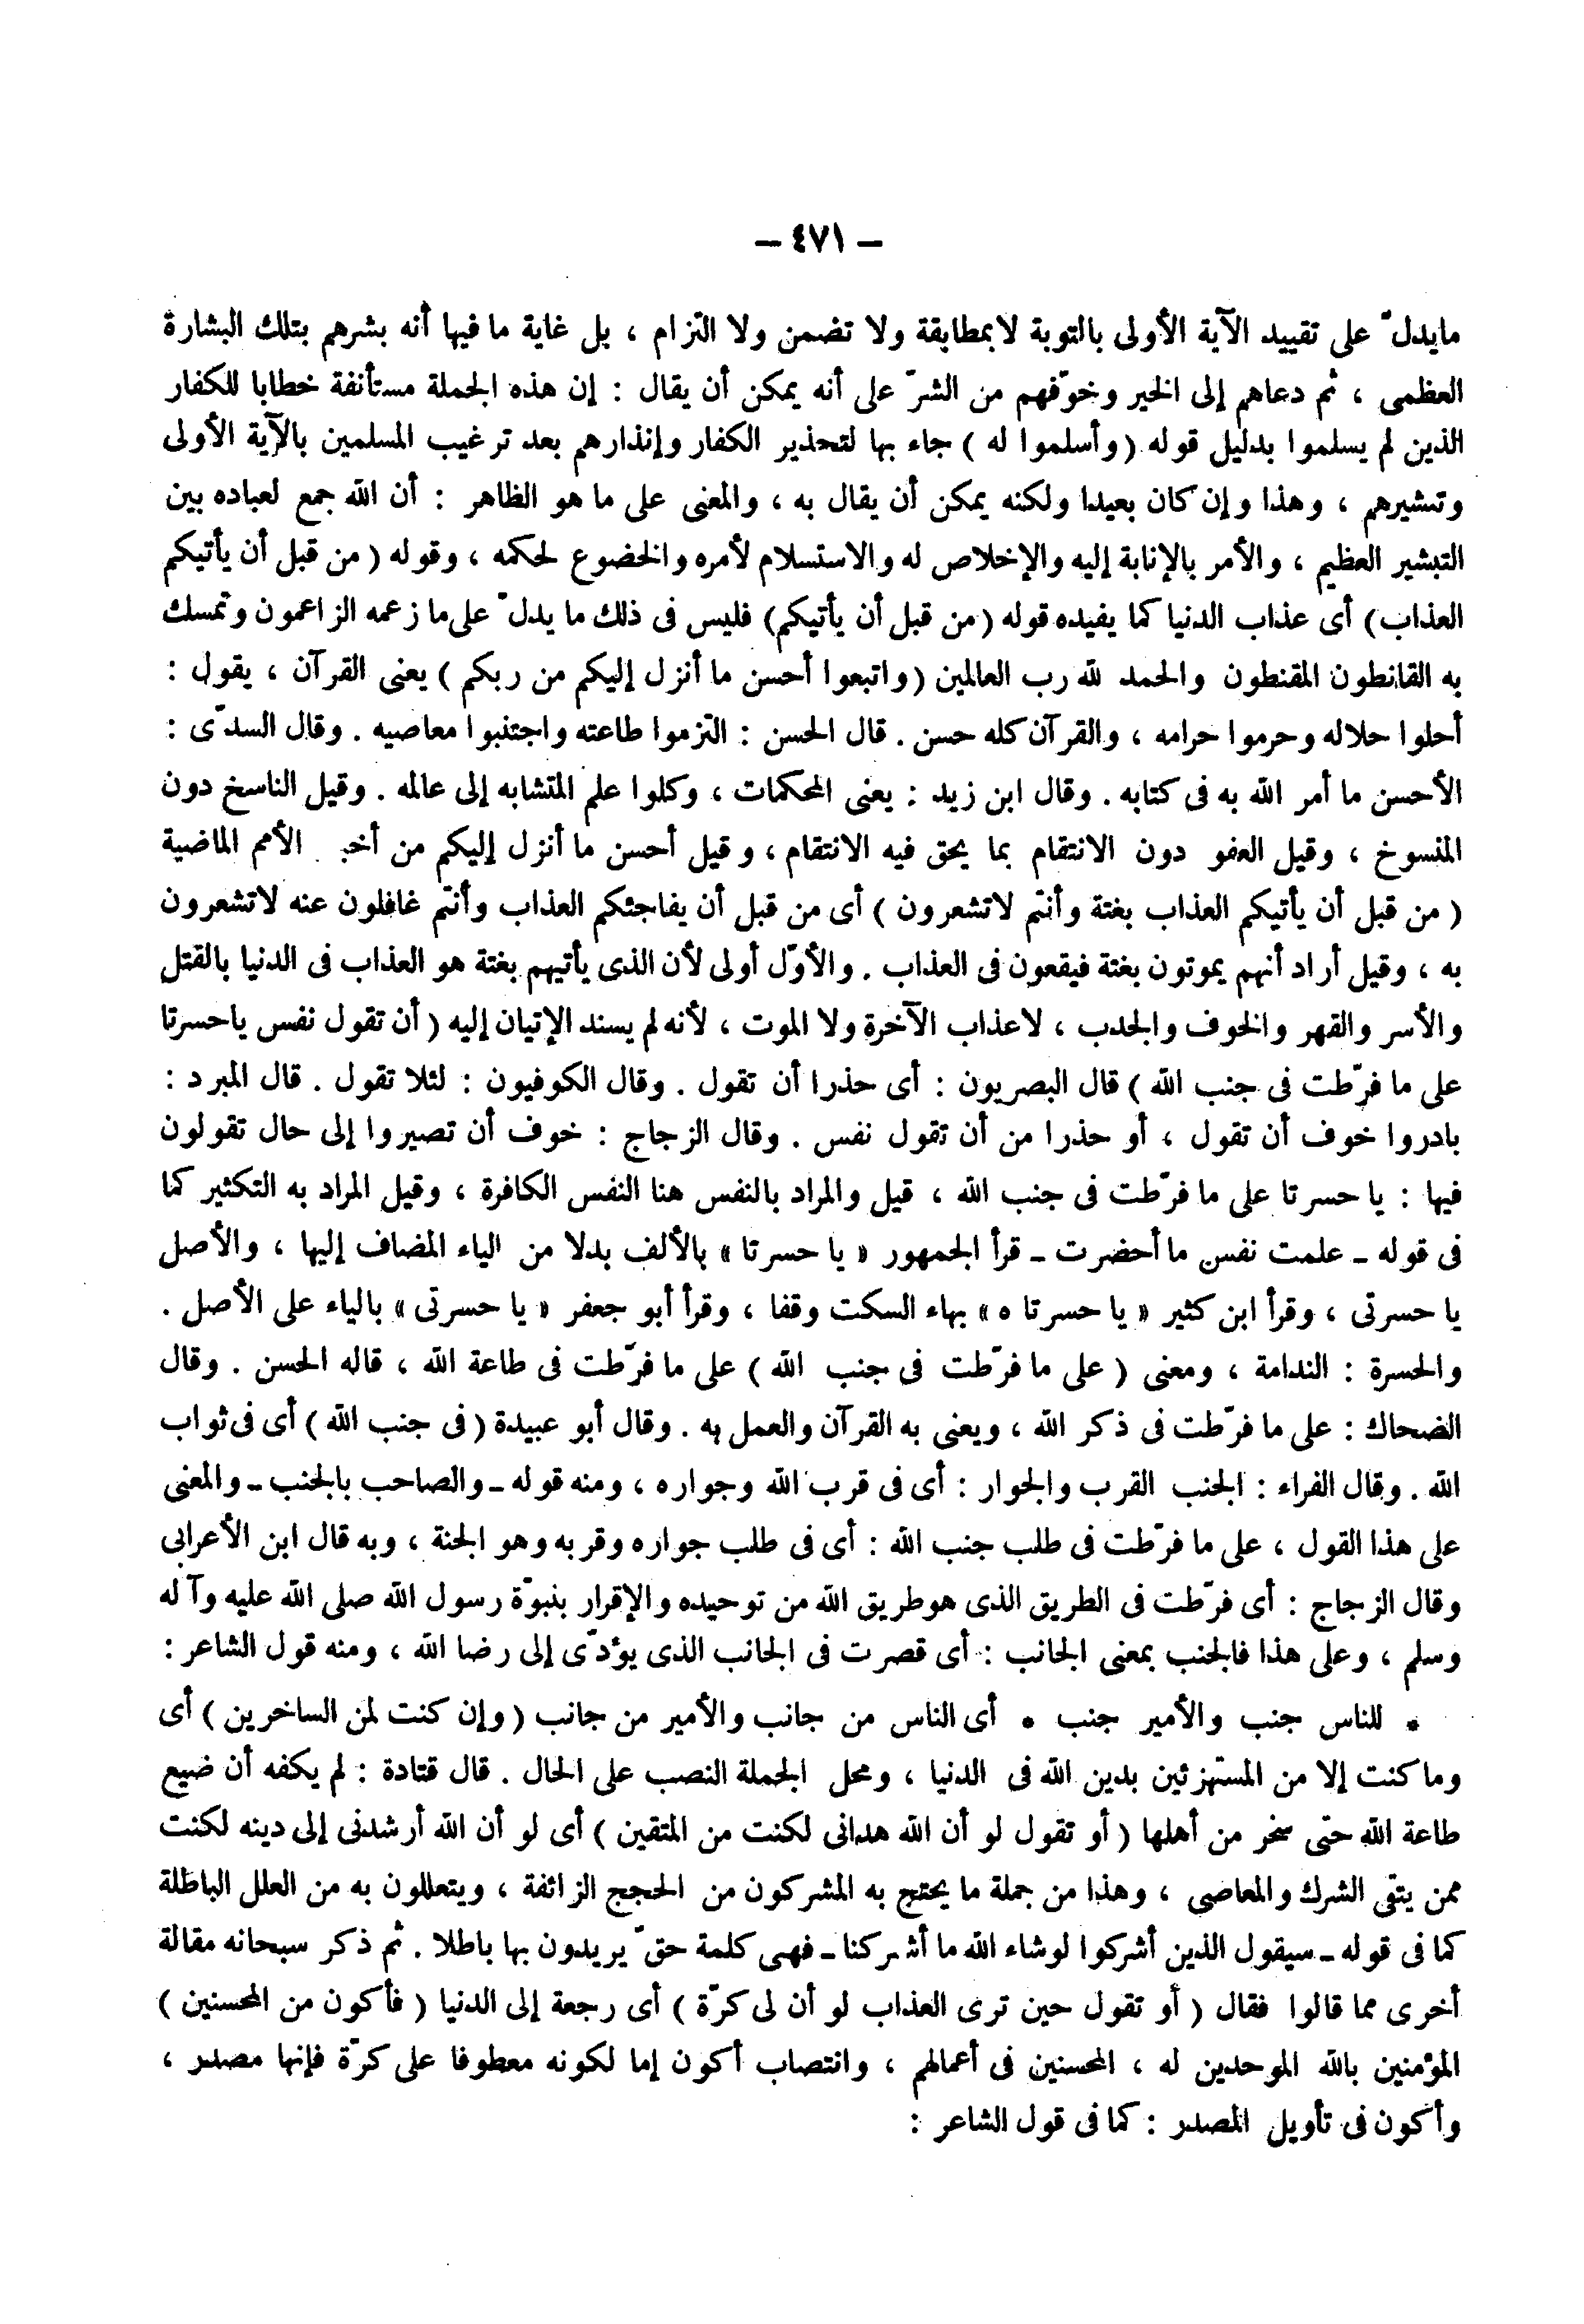 — ٤٧١ —
مايدلّ على تقييد الآية الأولى بالتوبة لابمطابقة ولا تضمن ولا التزام ، بل غاية ما فيها أنه بشرهم بتلك البشارة
العظمى ، ثم دعاهم إلى الخير وخوّفهم من الشرّ على أنه يمكن أن يقال : إن هذه الجملة مستأنفة خطابا للكفار
الذين لم يسلموا بدليل قوله ( وأسلموا له ) جاء بها لتحذير الكفار وإنذارهم بعد ترغيب المسلمين بالآية الأولى
وتبشيرهم ، وهذا وإن كان بعيدا ولكنه يمكن أن يقال به ، والمعنى على ما هو الظاهر : أن الله جمع لعباده بين
التبشير العظيم ، والأمر بالإنابة إليه والإخلاص له والاستسلام لأمره والخضوع لحكمه ، وقوله ( من قبل أن يأتيكم
العذاب ) أى عذاب الدنيا كما يفيده قوله ( من قبل أن يأتيكم) فليس فى ذلك ما يدلّ على ما زعمه الزاعمون وتمسك
به القانطون المقنطون والحمد لله رب العالمين ( واتبعوا أحسن ما أنزل إليكم من ربكم ) يعنى القرآن ، يقول :
أحلوا حلاله وحرموا حرامه ، والقرآن كله حسن . قال الحسن : التزموا طاعته واجتنبوا معاصيه . وقال السدّى :
الأحسن ما أمر الله به فى كتابه . وقال ابن زيد : يعنى المحكمات ، وكلوا علم المتشابه إلى عالمه . وقيل الناسخ دون
المنسوخ ، وقيل العفو دون الانتقام بما يحق فيه الانتقام ، وقيل أحسن ما أنزل إليكم من الأمم الماضية
( من قبل أن يأتيكم العذاب بغتة وأنتم لاتشعرون ) أى من قبل أن يفاجئكم العذاب وأنتم غافلون عنه لاتشعرون
به ، وقيل أراد أنهم يموتون بغتة فيقعون فى العذاب . والأوّل أولى لأن الذى يأتيهم بغتة هو العذاب فى الدنيا بالقتل
والأسر والقهر والخوف والجدب ، لاعذاب الآخرة ولا الموت ، لأنه لم يسند الإتيان إليه ( أن تقول نفس ياحسرتا
على ما فرّطت فى جنب الله ) قال البصريون : أى حذرا أن تقول . وقال الكوفيون : لئلا تقول . قال المبرد :
بادروا خوف أن تقول ، أو حذرا من أن تقول نفس . وقال الزجاج : خوف أن تصيروا إلى حال تقولون
فيها : يا حسرتا على ما فرّطت فى جنب الله ، قيل والمراد بالنفس هنا النفس الكافرة ، وقيل المراد به التكثير كما
فى قوله ـ علمت نفس ما أحضرت ـ قرأ الجمهور « يا حسرتا » بالألف بدلا من الياء المضاف إليها ، والأصل
يا حسرتى ، وقرأ ابن كثير « يا حسرتا ه » بهاء السكت وقفا ، وقرأ أبو جعفر « يا حسرتى » بالياء على الأصل .
والحسرة : الندامة ، ومعنى ( على ما فرّطت فى جنب الله ) على ما فرّطت فى طاعة الله ، قاله الحسن . وقال
الضحاك : على ما فرّطت فى ذكر الله ، ويعنى به القرآن والعمل به . وقال أبو عبيدة ( فى جنب الله ) أى فى ثواب
الله . وقال الفراء : الجنب القرب والجوار : أى فى قرب الله وجواره ، ومنه قوله ـ والصاحب بالجنب ـ والمعنى
على هذا القول ، على ما فرّطت فى طلب جنب الله : أى فى طلب جواره وقربه وهو الجنة ، وبه قال ابن الأعرابى
وقال الزجاج : أى فرّطت فى الطريق الذى هو طريق الله من توحيده والإقرار بنبوّة رسول الله صلى الله عليه وآله
وسلم ، وعلى هذا فالجنب بمعنى الجانب : أى قصرت فى الجانب الذى يؤدّى إلى رضا الله ، ومنه قول الشاعر :
* للناس جنب والأمير جنب * أى الناس من جانب والأمير من جانب ( وإن كنت لمن الساخرين ) أى
وما كنت إلا من المستهزئين بدين الله فى الدنيا ، ومحل الجملة النصب على الحال . قال قتادة : لم يكفه أن ضيع
طاعة الله حتى سخر من أهلها ( أو تقول لو أن الله هدانى لكنت من المتقين ) أى لو أن الله أرشدنى إلى دينه لكنت
ممن يتقى الشرك والمعاصى ، وهذا من جملة ما يحتج به المشركون من الحجج الزائفة ، ويتعللون به من العلل الباطلة
كما فى قوله ـ سيقول الذين أشركوا لوشاء الله ما أشركنا ـ فهى كلمة حقّ يريدون بها باطلا . ثم ذكر سبحانه مقالة
أخرى مما قالوا فقال ( أو تقول حين ترى العذاب لو أن لى كرّة ) أى رجعة إلى الدنيا ( فأكون من المحسنين )
المؤمنين بالله الموحدين له ، المحسنين فى أعمالهم ، وانتصاب أكون إما لكونه معطوفا على كرّة فإنها مصدر ،
وأكون فى تأويل المصدر : كما فى قول الشاعر :